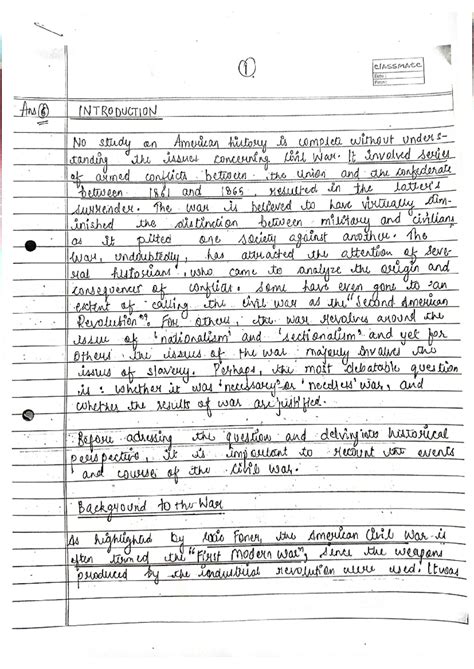 ①
classmate
Date :
Page :
Ans ⑥ INTRODUCTION
No study on American history is complete without unders-
tanding the issues concerning Civil War. It involved series
of armed conflicts between the union and the confederate
between 1861 and 1865, resulted in the latter's
surrender. The war is believed to have virtually dim-
inished the distinction between military and civilians,
as it pitted one society against another. The
war, undoubtedly, has attracted the attention of seve-
ral historians, who came to analyze the origin and
consequences of conflicts. Some have even gone to an
extent of calling the civil war as the "Second American
Revolution". For others, the war revolves around the
issue of 'nationalism' and 'sectionalism' and yet for
others the issues of the war majorly involves the
issues of slavery. Perhaps, the most debatable question
is : whether it was 'necessary' or 'needless' war, and
whether the results of war are justified.
Before adressing the question and delving into historical
perspective, it is important to recount the events
and courses of the Civil War.
Background to the War
As highlighted by Foner, the American Civil War is
often termed the "First Modern War", since the weapons
produced by the industrial revolution were used. It was